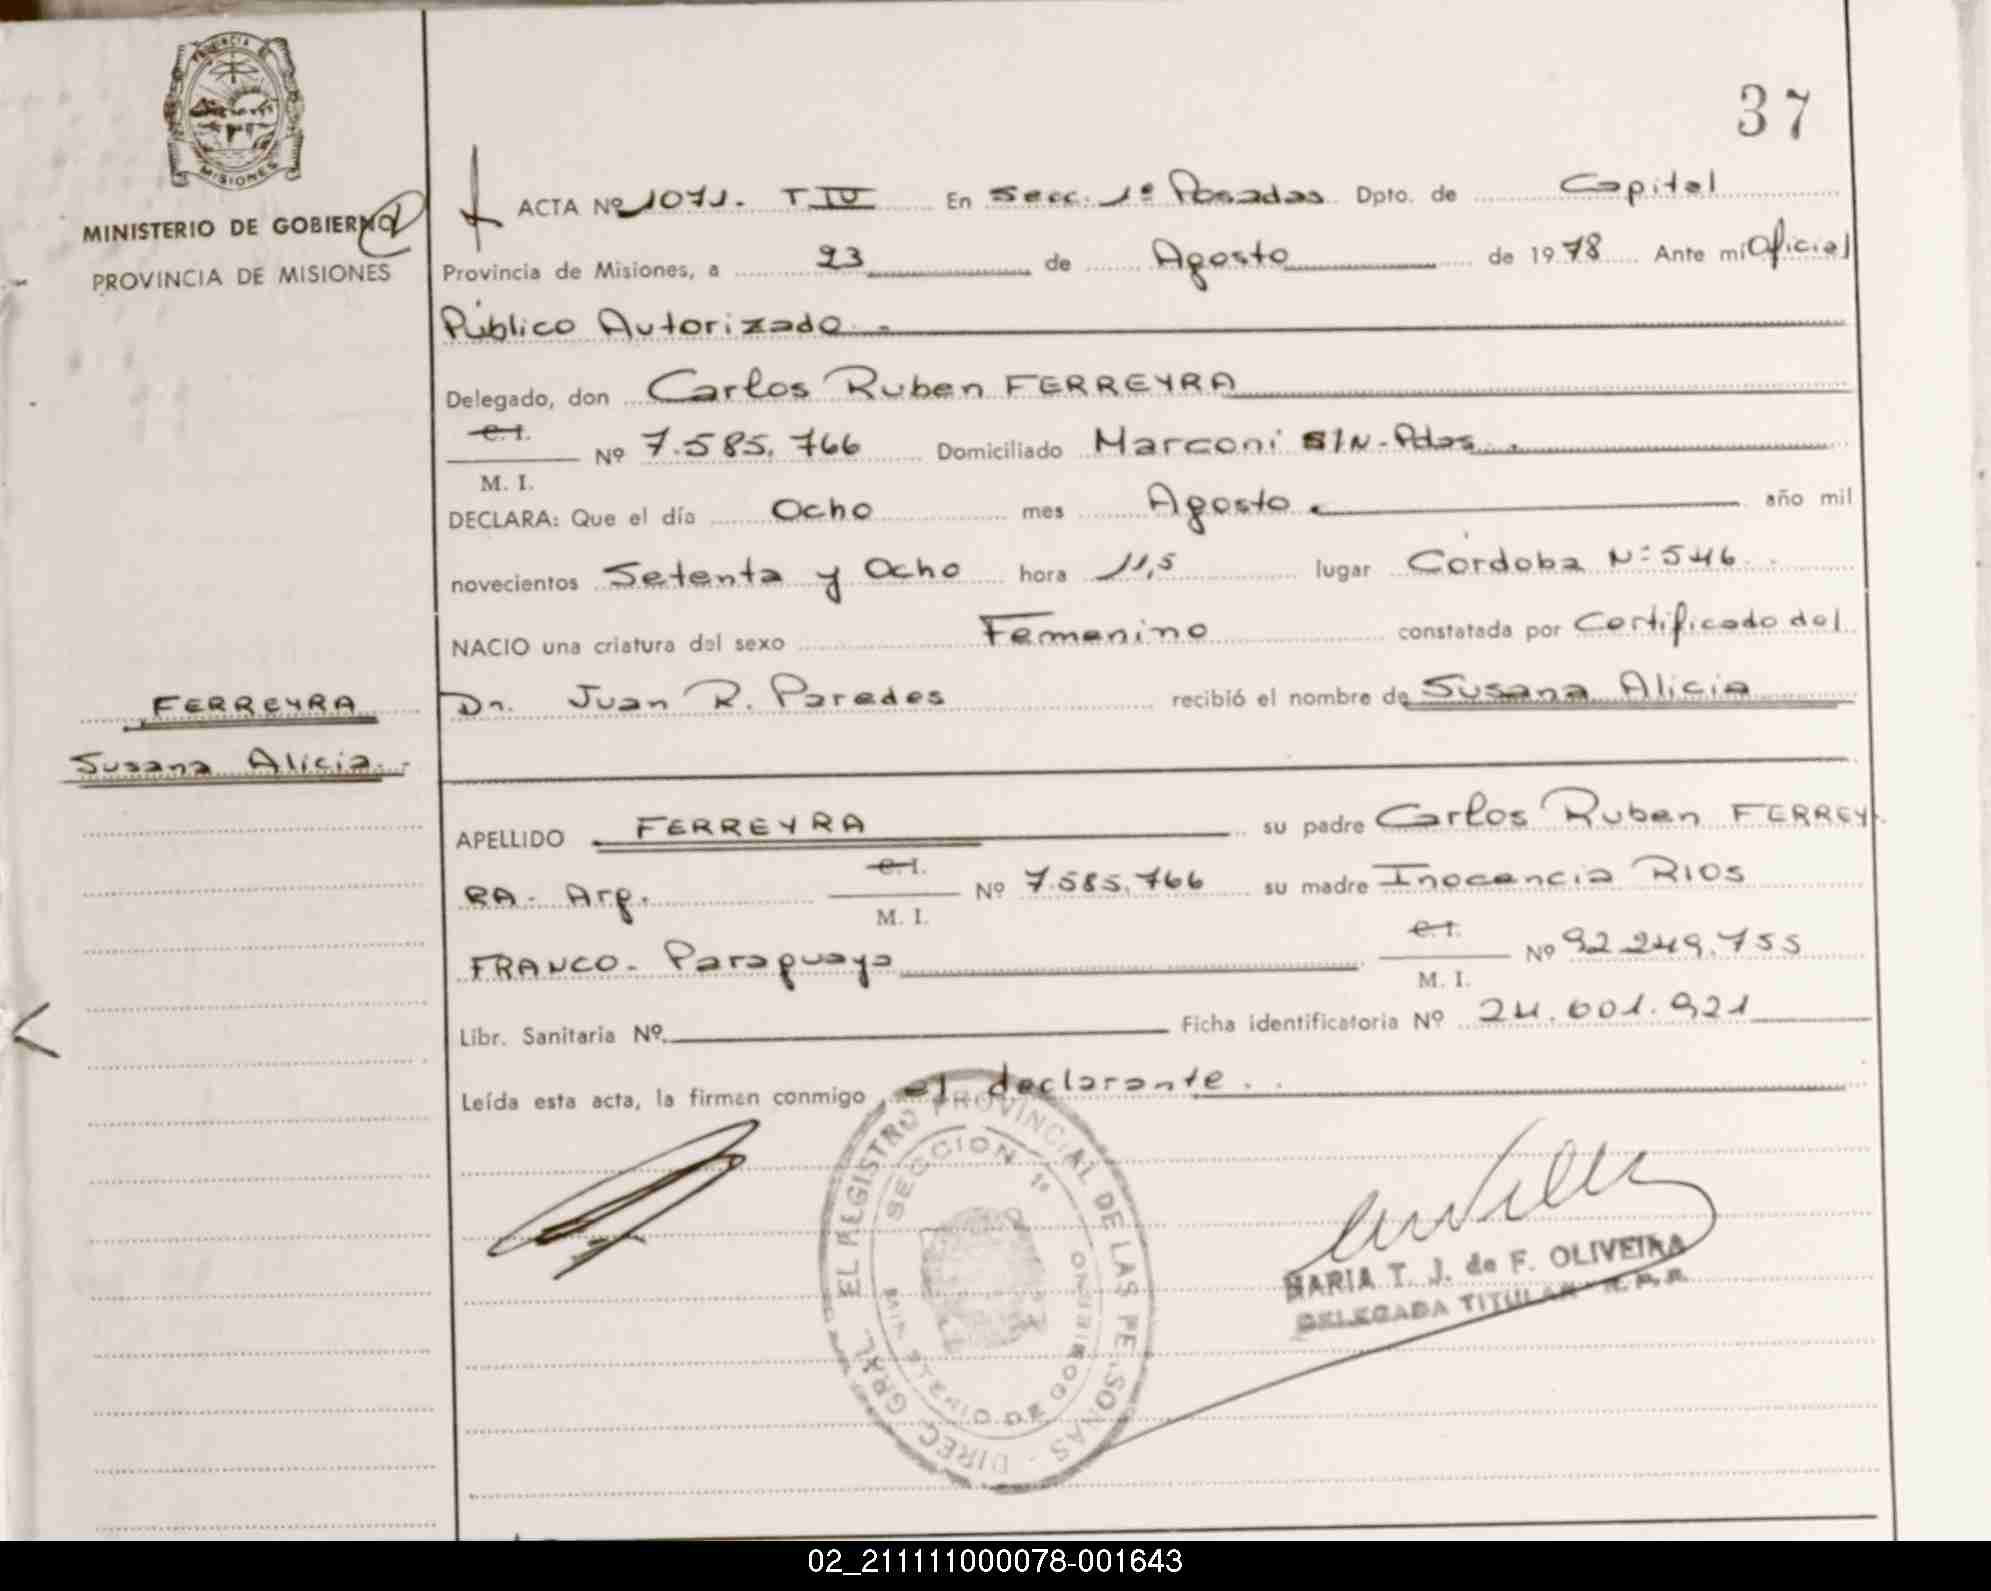 PROVINCIA DE
MISIONES
MINISTERIO DE GOBIERNO
PROVINCIA DE MISIONES
37
ACTA Nº 1071. T IV En Secc. 1º Posadas Dpto. de Capital
Provincia de Misiones, a 23 de Agosto de 1978 Ante mi Oficial
Público Autorizado.-
Delegado, don Carlos Ruben FERREYRA
C.I.
M. I. Nº 7.585.766 Domiciliado Marconi S/N-Pdas.
DECLARA: Que el día Ocho mes Agosto año mil
novecientos Setenta y Ocho hora 11,5 lugar Córdoba Nº 546
NACIO una criatura del sexo Femenino constatada por Certificado del
Dr. Juan R. Paredes recibió el nombre de Susana Alicia
FERREYRA
Susana Alicia.-
APELLIDO FERREYRA su padre Carlos Ruben FERREY
RA- Arg. C.I.
M. I. Nº 7.585.766 su madre Inocencia RIOS
FRANCO- Paraguaya C.I.
M. I. Nº 92 249.755
Libr. Sanitaria Nº. Ficha identificatoria Nº 24.601.921
Leída esta acta, la firman conmigo, el declarante.
DIREC. GRAL. EL REGISTRO PROVINCIAL DE LAS PERSONAS -
SECCION 1ª
MINISTERIO DE GOBIERNO
MARIA T. J. de F. OLIVEIRA
DELEGADA TITULAR R. P. P.
02_211111000078-001643